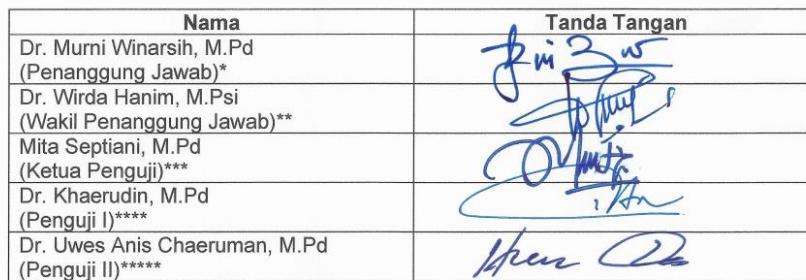 Nama Tanda Tangan
Dr. Murni Winarsih, M.Pd
(Penanggung Jawab)*
Dr. Wirda Hanim, M.Psi
(Wakil Penanggung Jawab)**
Mita Septiani, M.Pd
(Ketua Penguji)***
Dr. Khaerudin, M.Pd
(Penguji I)****
Dr. Uwes Anis Chaeruman, M.Pd
(Penguji II)*****